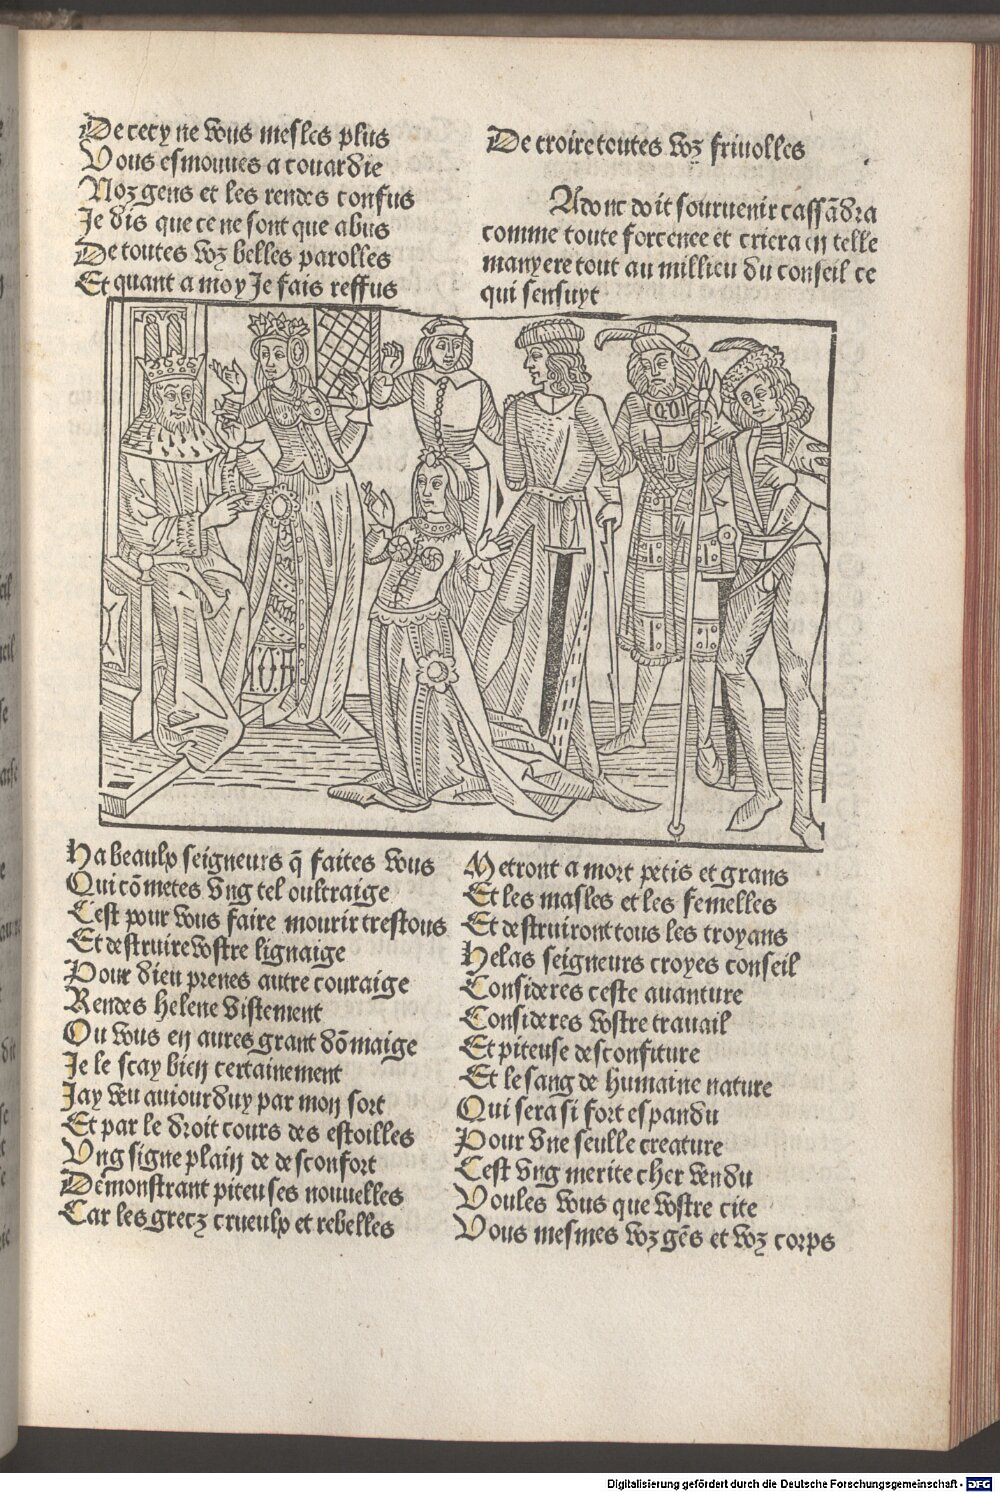 De cecy ne vous mesles plus
Vous esmouues a couardie
Noz gens et les rendes confus
Je dis que ce ne sont que abus
De toutes voz belles parolles
Et quant a moy Je fais reffus
De croire toutes voz friuolles
Adonc doit souruenir cassãdra
comme toute forcenee et criera en telle
manyere tout au millieu du conseil ce
qui sensuyt
Ha beaulx seigneurs q̃ faites vous
Qui cõmetes vng tel oultraige
Cest pour vous faire mourir trestous
Et destruire vostre lignaige
Pour dieu prenes autre couraige
Rendes helene vistement
Ou vous en aures grant dõmaige
Je le scay bien certainement
Jay veu auiourduy par mon sort
Et par le droit cours des estoilles
Vng signe plain de desconfort
Demonstrant piteuses nouuelles
Car les grecz crueulx et rebelles
Metront a mort petis et grans
Et les masles et les femelles
Et destruiront tous les troyans
Helas seigneurs croyes conseil
Consideres ceste auanture
Consideres vostre trauail
Et piteuse desconfiture
Et le sang de humaine nature
Qui sera si fort espandu
Pour vne seulle creature
Cest vng merite cher vendu
Voules vous que vostre cite
Vous mesmes voz gẽs et voz corps
Digitalisierung gefördert durch die Deutsche Forschungsgemeinschaft - DFG